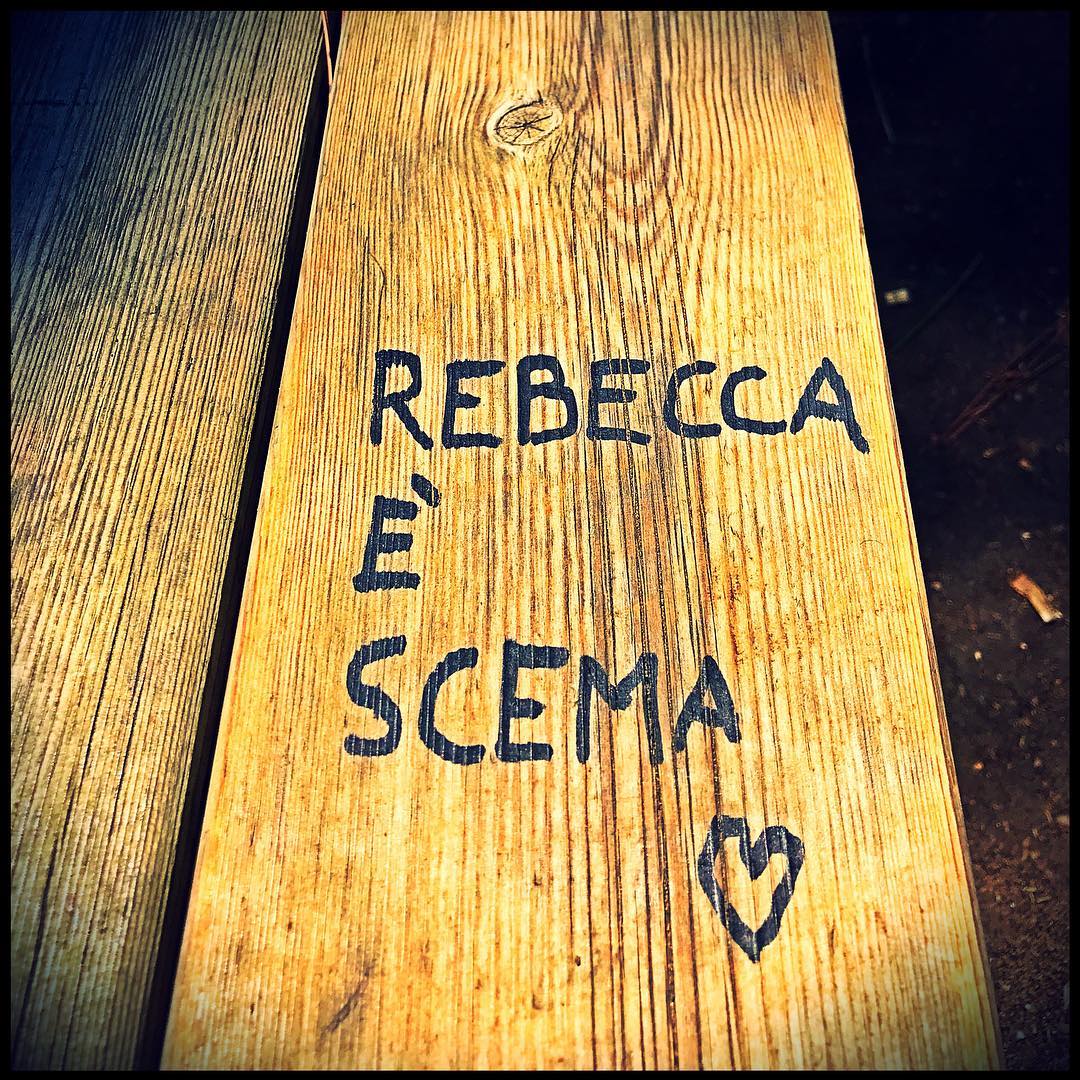 REBECCA
È
SCEMA